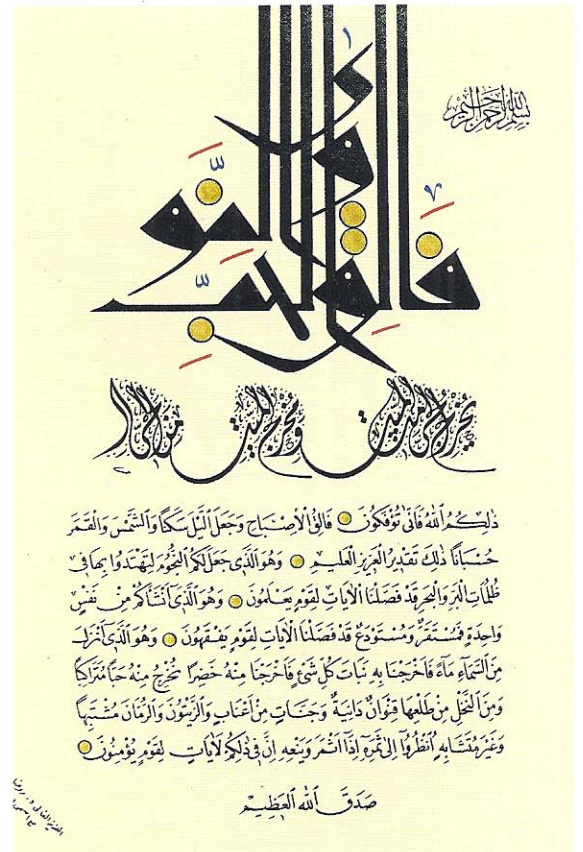 بِسْمِ اللهِ الرَّحْمٰنِ الرَّحِيمِ
فَالِقُ الْحَبِّ وَالنَّوٰى
يُخْرِجُ الْحَيَّ مِنَ الْمَيِّتِ وَمُخْرِجُ الْمَيِّتِ مِنَ الْحَيِّ
ذٰلِكُمُ اللهُ فَاَنّٰى تُؤْفَكُونَ فَالِقُ الْاِصْبَاحِ وَجَعَلَ الَّيْلَ سَكَنًا وَالشَّمْسَ وَالْقَمَرَ
حُسْبَانًا ذٰلِكَ تَقْدِيرُ الْعَزِيزِ الْعَلِيمِ وَهُوَ الَّذِى جَعَلَ لَكُمُ النُّجُومَ لِتَهْتَدُوا بِهَا فِى
ظُلُمَاتِ الْبَرِّ وَالْبَحْرِ قَدْ فَصَّلْنَا الْاٰيَاتِ لِقَوْمٍ يَعْلَمُونَ وَهُوَ الَّذِى اَنْشَاَكُمْ مِنْ نَفْسٍ
وَاحِدَةٍ فَمُسْتَقَرٌّ وَمُسْتَوْدَعٌ قَدْ فَصَّلْنَا الْاٰيَاتِ لِقَوْمٍ يَفْقَهُونَ وَهُوَ الَّذِى اَنْزَلَ
مِنَ السَّمَاءِ مَاءً فَاَخْرَجْنَا بِهِ نَبَاتَ كُلِّ شَىْءٍ فَاَخْرَجْنَا مِنْهُ خَضِرًا نُخْرِجُ مِنْهُ حَبًّا مُتَرَاكِبًا
وَمِنَ النَّخْلِ مِنْ طَلْعِهَا قِنْوَانٌ دَانِيَةٌ وَجَنَّاتٍ مِنْ اَعْنَابٍ وَالزَّيْتُونَ وَالرُّمَّانَ مُشْتَبِهًا
وَغَيْرَ مُتَشَابِهٍ اُنْظُرُوا اِلٰى ثَمَرِهِ اِذَا اَثْمَرَ وَيَنْعِهِ اِنَّ فِى ذٰلِكُمْ لَاٰيَاتٍ لِقَوْمٍ يُؤْمِنُونَ
صَدَقَ اللهُ الْعَظِيمُ